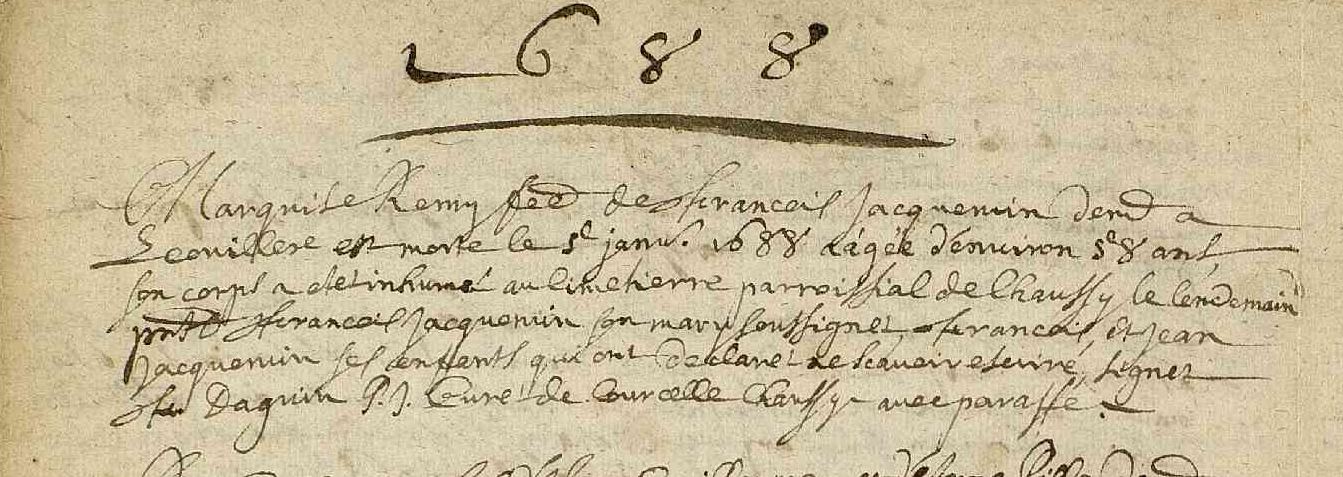 1688
Marguite Remy fée de francois Jacquemin demt a
Leovillere est morte le 5e janv. 1688 aagée d'environ 58 ans
son corps a étét inhumét au Cimetierre parroissial de Chaussy le lendemain
pnts francois Jacquemin son mary soussignét francois, et Jean
Jacquemin ses enfants qui ont declarét ne scavoir escrire, signét
Daguin P. J. Curét de Courcelle Chaussy avec paraffe.